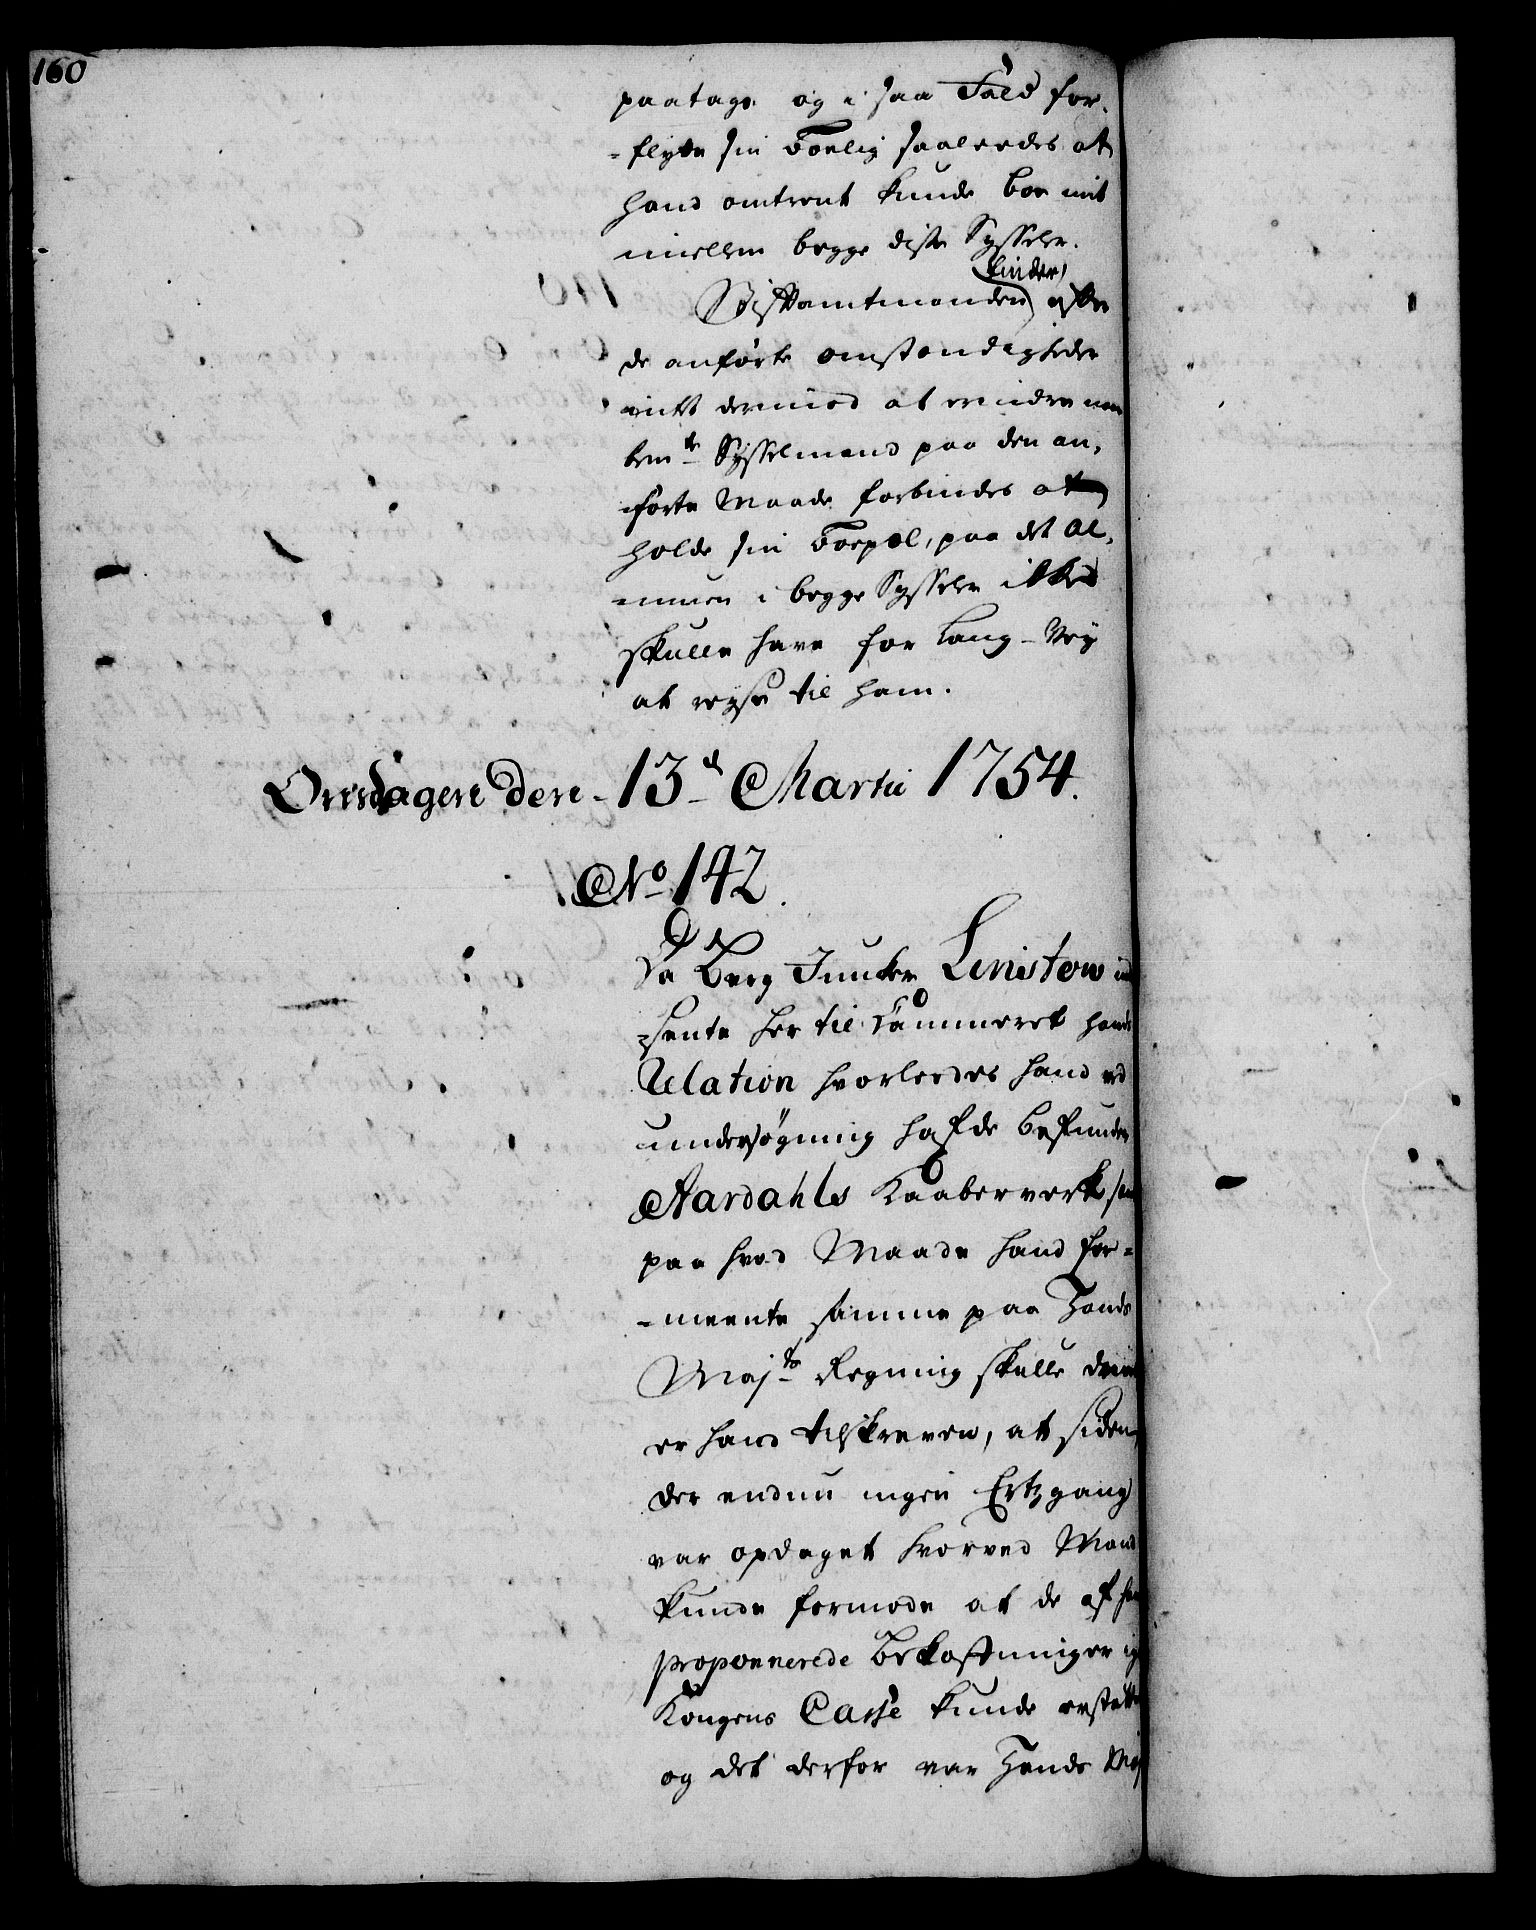 160
paatage og i saa Fald for¬
-flytte sin Boelig saaleedes at
hand omtrent kunde boe mit
imellem begge disse Sysseler.
finder
Stiftamtmanden efter
de anførte omstændigheder
intet dermod at erindre naar
bemte Sysselmand paa den an¬
førte Maade forbindes at
holde sin Boepæl, paa det Al¬
muen i begge Sysseler ikke
skulle have for lang-Vey
at reyse til ham.
Onsdagen den-13d Martii 1754.
No 142.
Da Berg Juncker Linstow ind
-sente her til Cammeret hans
Relation hvorleedes hand ved
undersøgning hafde befunden
Aardahls Kaaberverk, samt
paa hvad Maade hand for=
-meente samme paa Hands
Majts Regning skulle drives
er hand tilskreven, at siden
der endnu ingen Ertzgang
var opdaget hvorved Mand
kunde formode at de af ham
proponnerede Bekostninger i
Kongens Casse kunde erstattes
og det derfor var Hands Maj